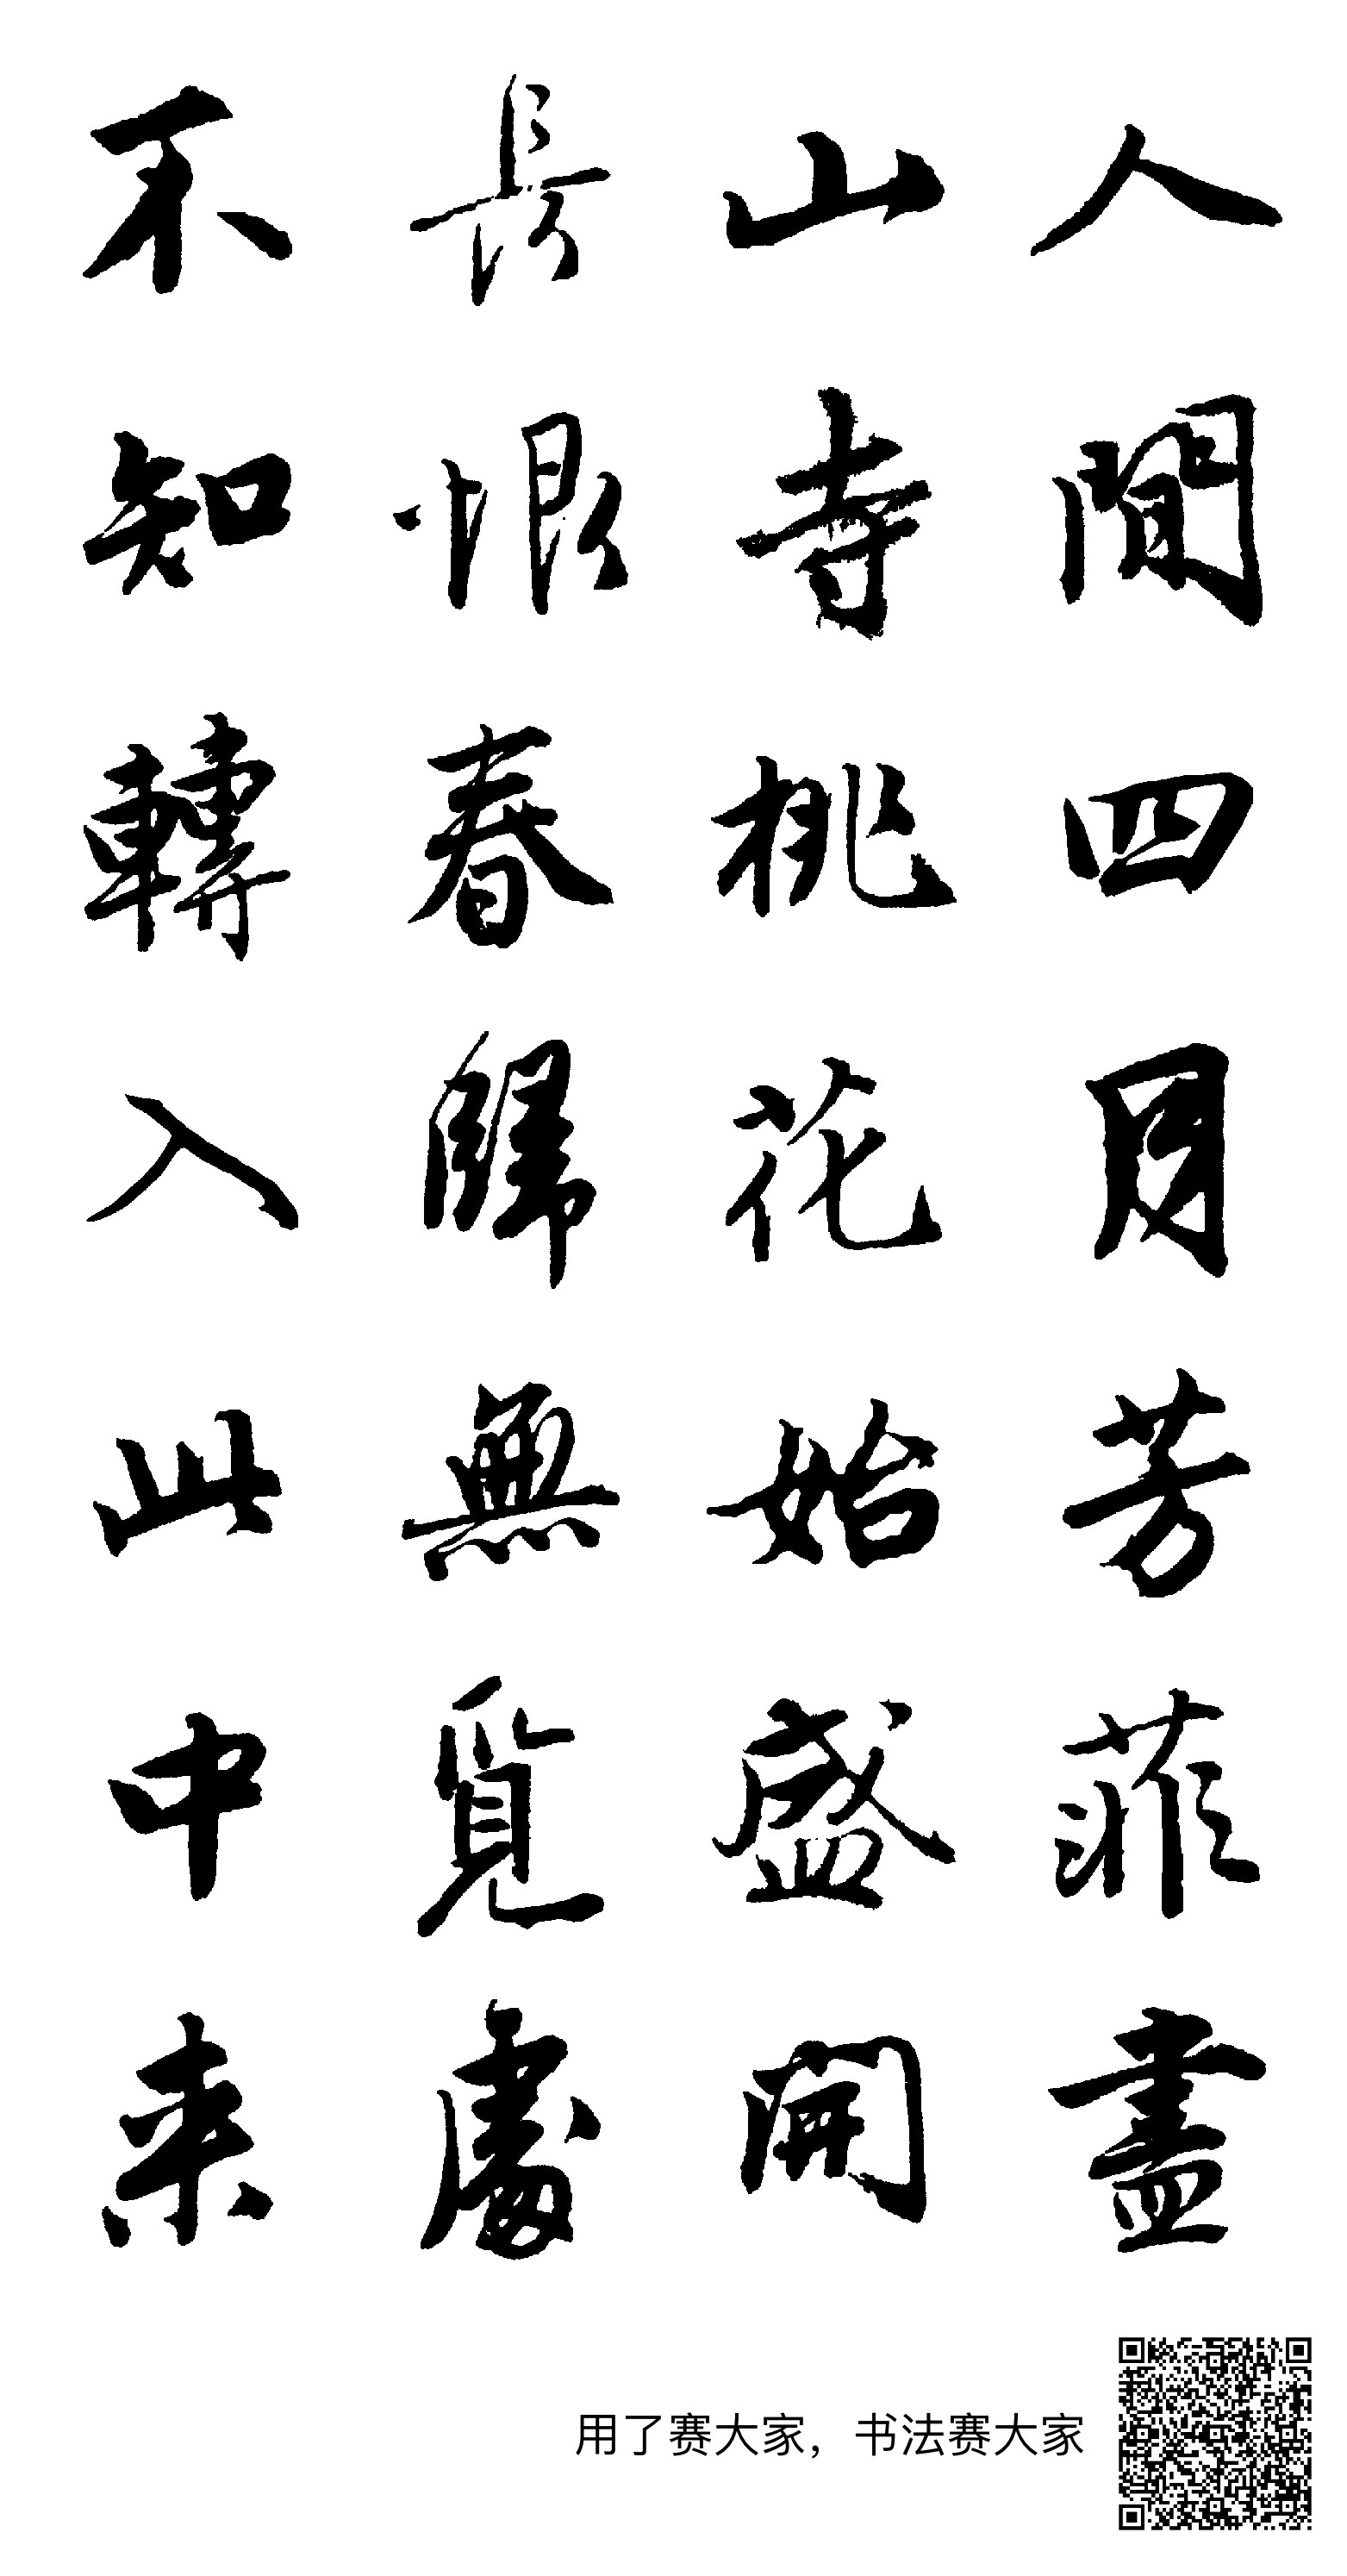 人間四月芳菲盡
山寺桃花始盛開
長恨春歸無覓處
不知轉入此中来
用了赛大家，书法赛大家